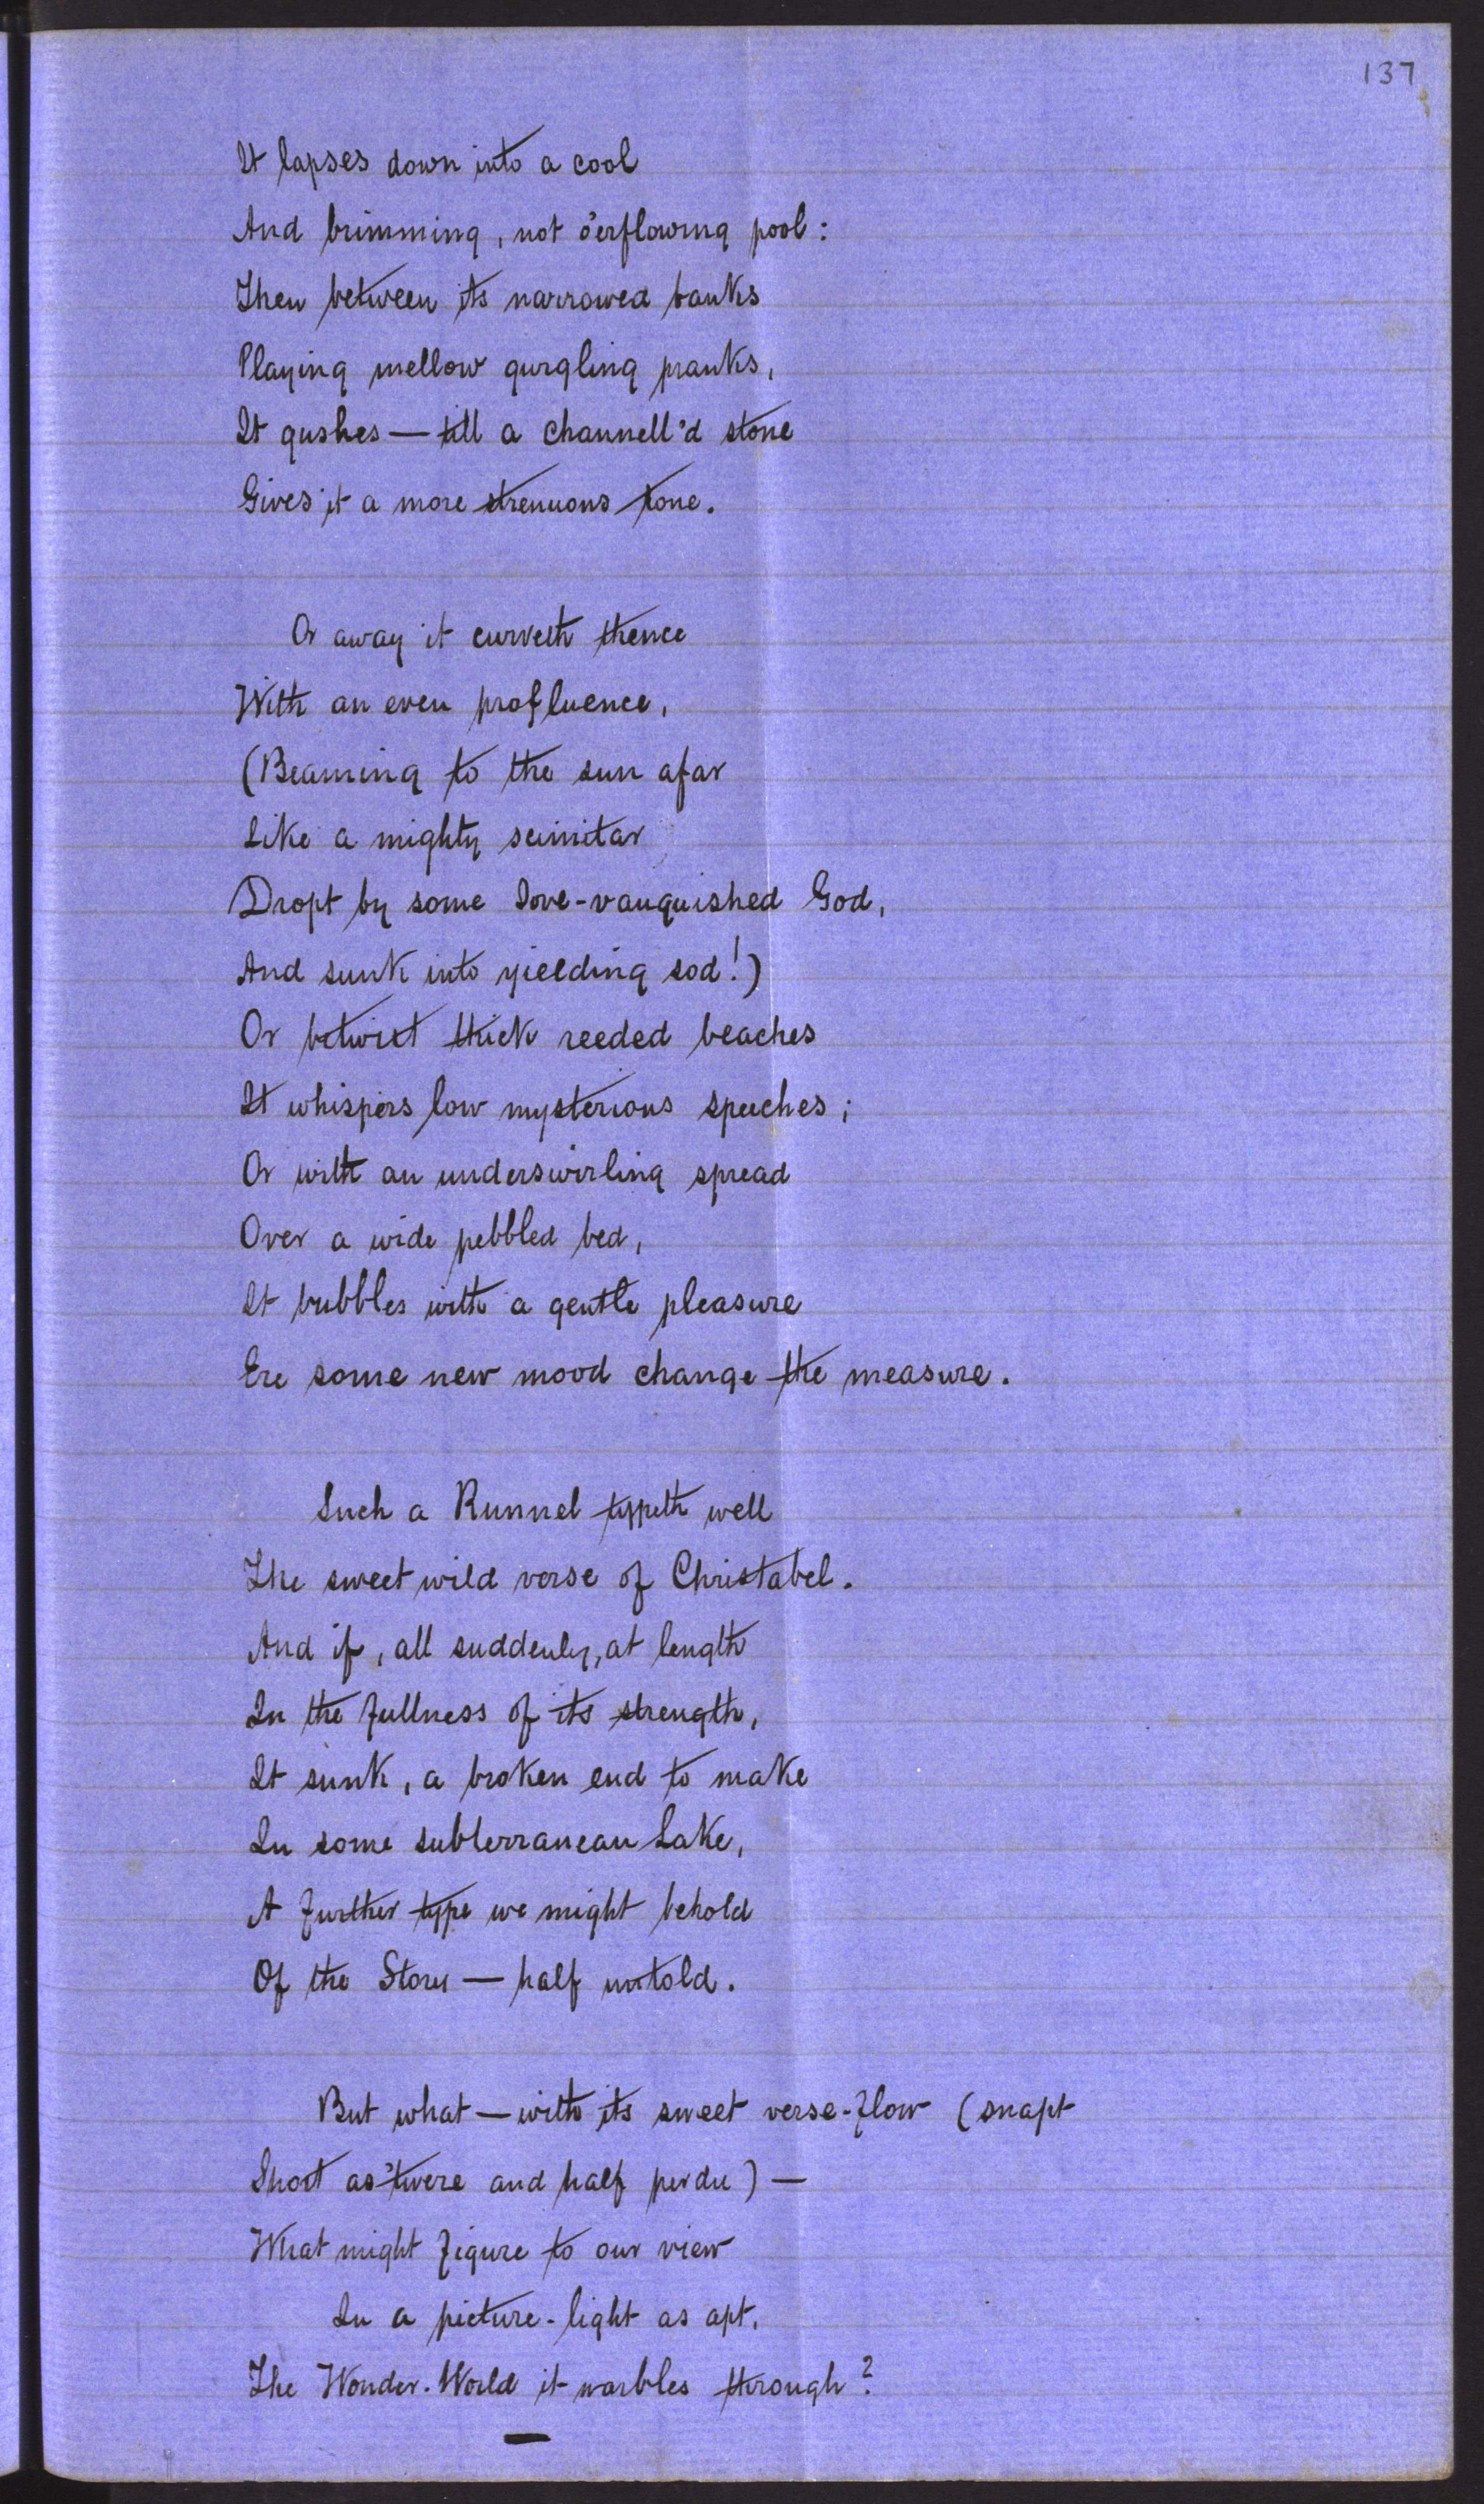 137
It lapses down into a cool
And brimming, not o'erflowing pool:
Then between its narrowed banks
Playing mellow gurgling pranks,
It gushes — till a channell'd stone
Gives it a more strenuous tone.
Or away it curveth thence
With an even profluence,
(Beaming to the sun afar
Like a mighty scimitar
Dropt by some love-vanquished God,
And sunk into yielding sod!)
Or betwixt thick reeded beaches
It whispers low mysterious speeches;
Or with an underswirling spread
Over a wide pebbled bed,
It bubbles with a gentle pleasure
Ere some new mood change the measure.
Such a Runnel typeth well
The sweet wild verse of Christabel.
And if, all suddenly, at length
In the fullness of its strength,
It sunk, a broken end to make
In some subterranean Lake,
A further type we might behold
Of the Story — half untold.
But what — with its sweet verse-flow (snapt
Short as 'twere and half perdu) —
What might figure to our view
In a picture-light as apt,
The Wonder-World it warbles through?